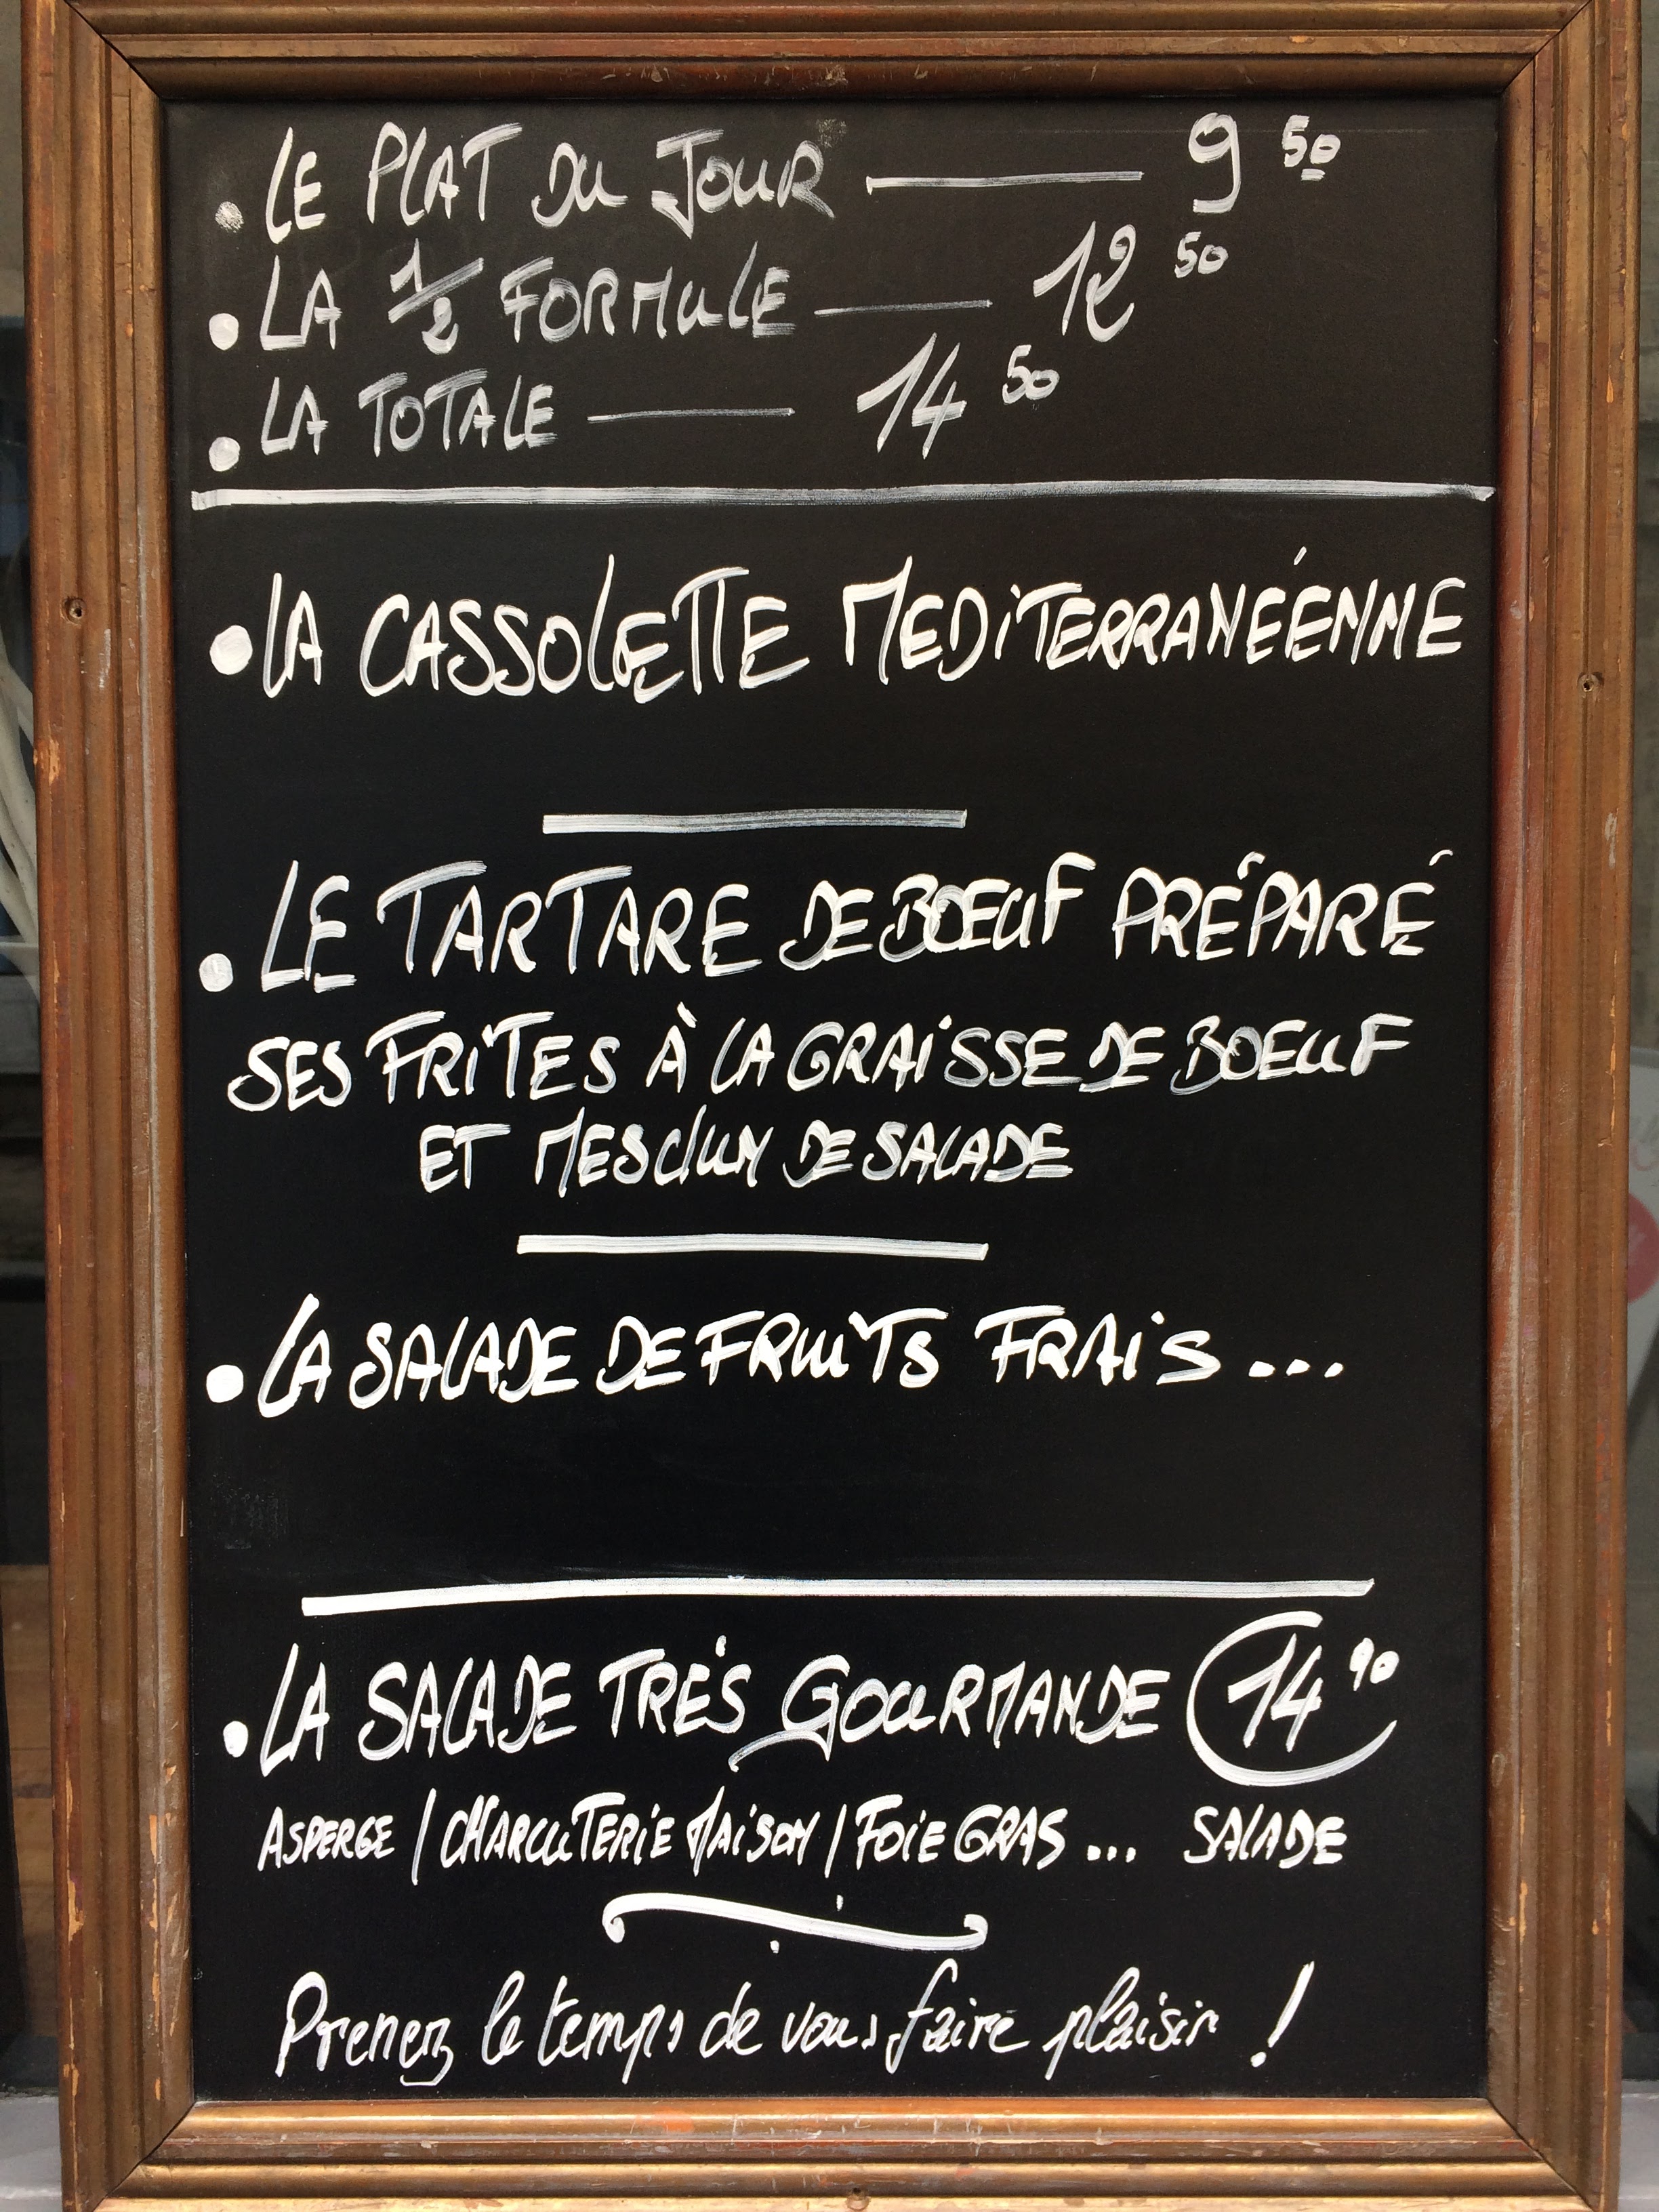 • LE PLAT DU JOUR — 9 50
• LA 1/2 FORMULE — 12 50
• LA TOTALE — 14 50
• LA CASSOLETTE MEDITERRANÉENNE
• LE TARTARE DE BOEUF PRÉPARÉ
SES FRITES À LA GRAISSE DE BOEUF
ET MESCLUN DE SALADE
• LA SALADE DE FRUITS FRAIS...
• LA SALADE TRÉS GOURMANDE 14 90
ASPERGE / CHARCUTERIE MAISON / FOIE GRAS ... SALADE
Prenez le temps de vous faire plaisir !